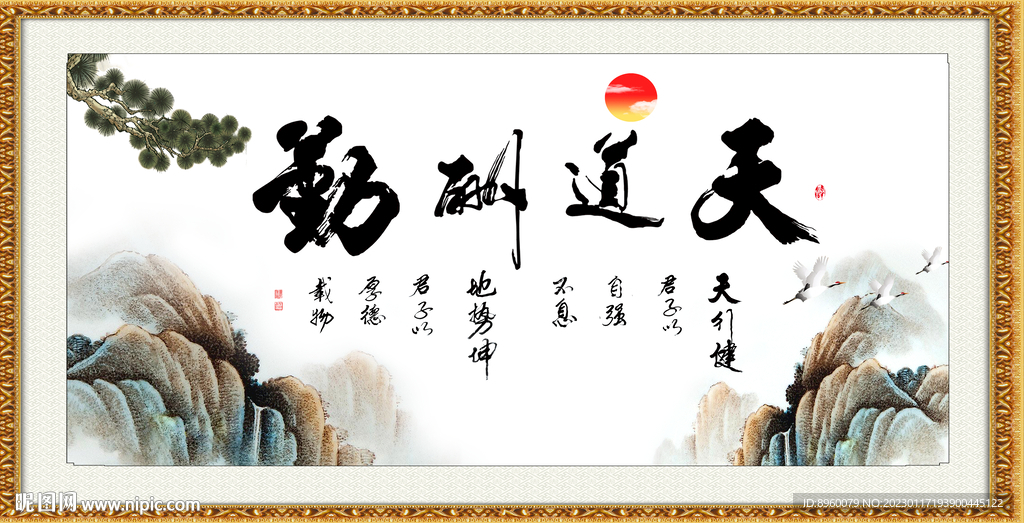 天道酬勤
天行健
君子以
自强
不息
地势坤
君子以
厚德
载物
昵图网 www.nipic.com
ID:8960079 NO:20230117193900445122